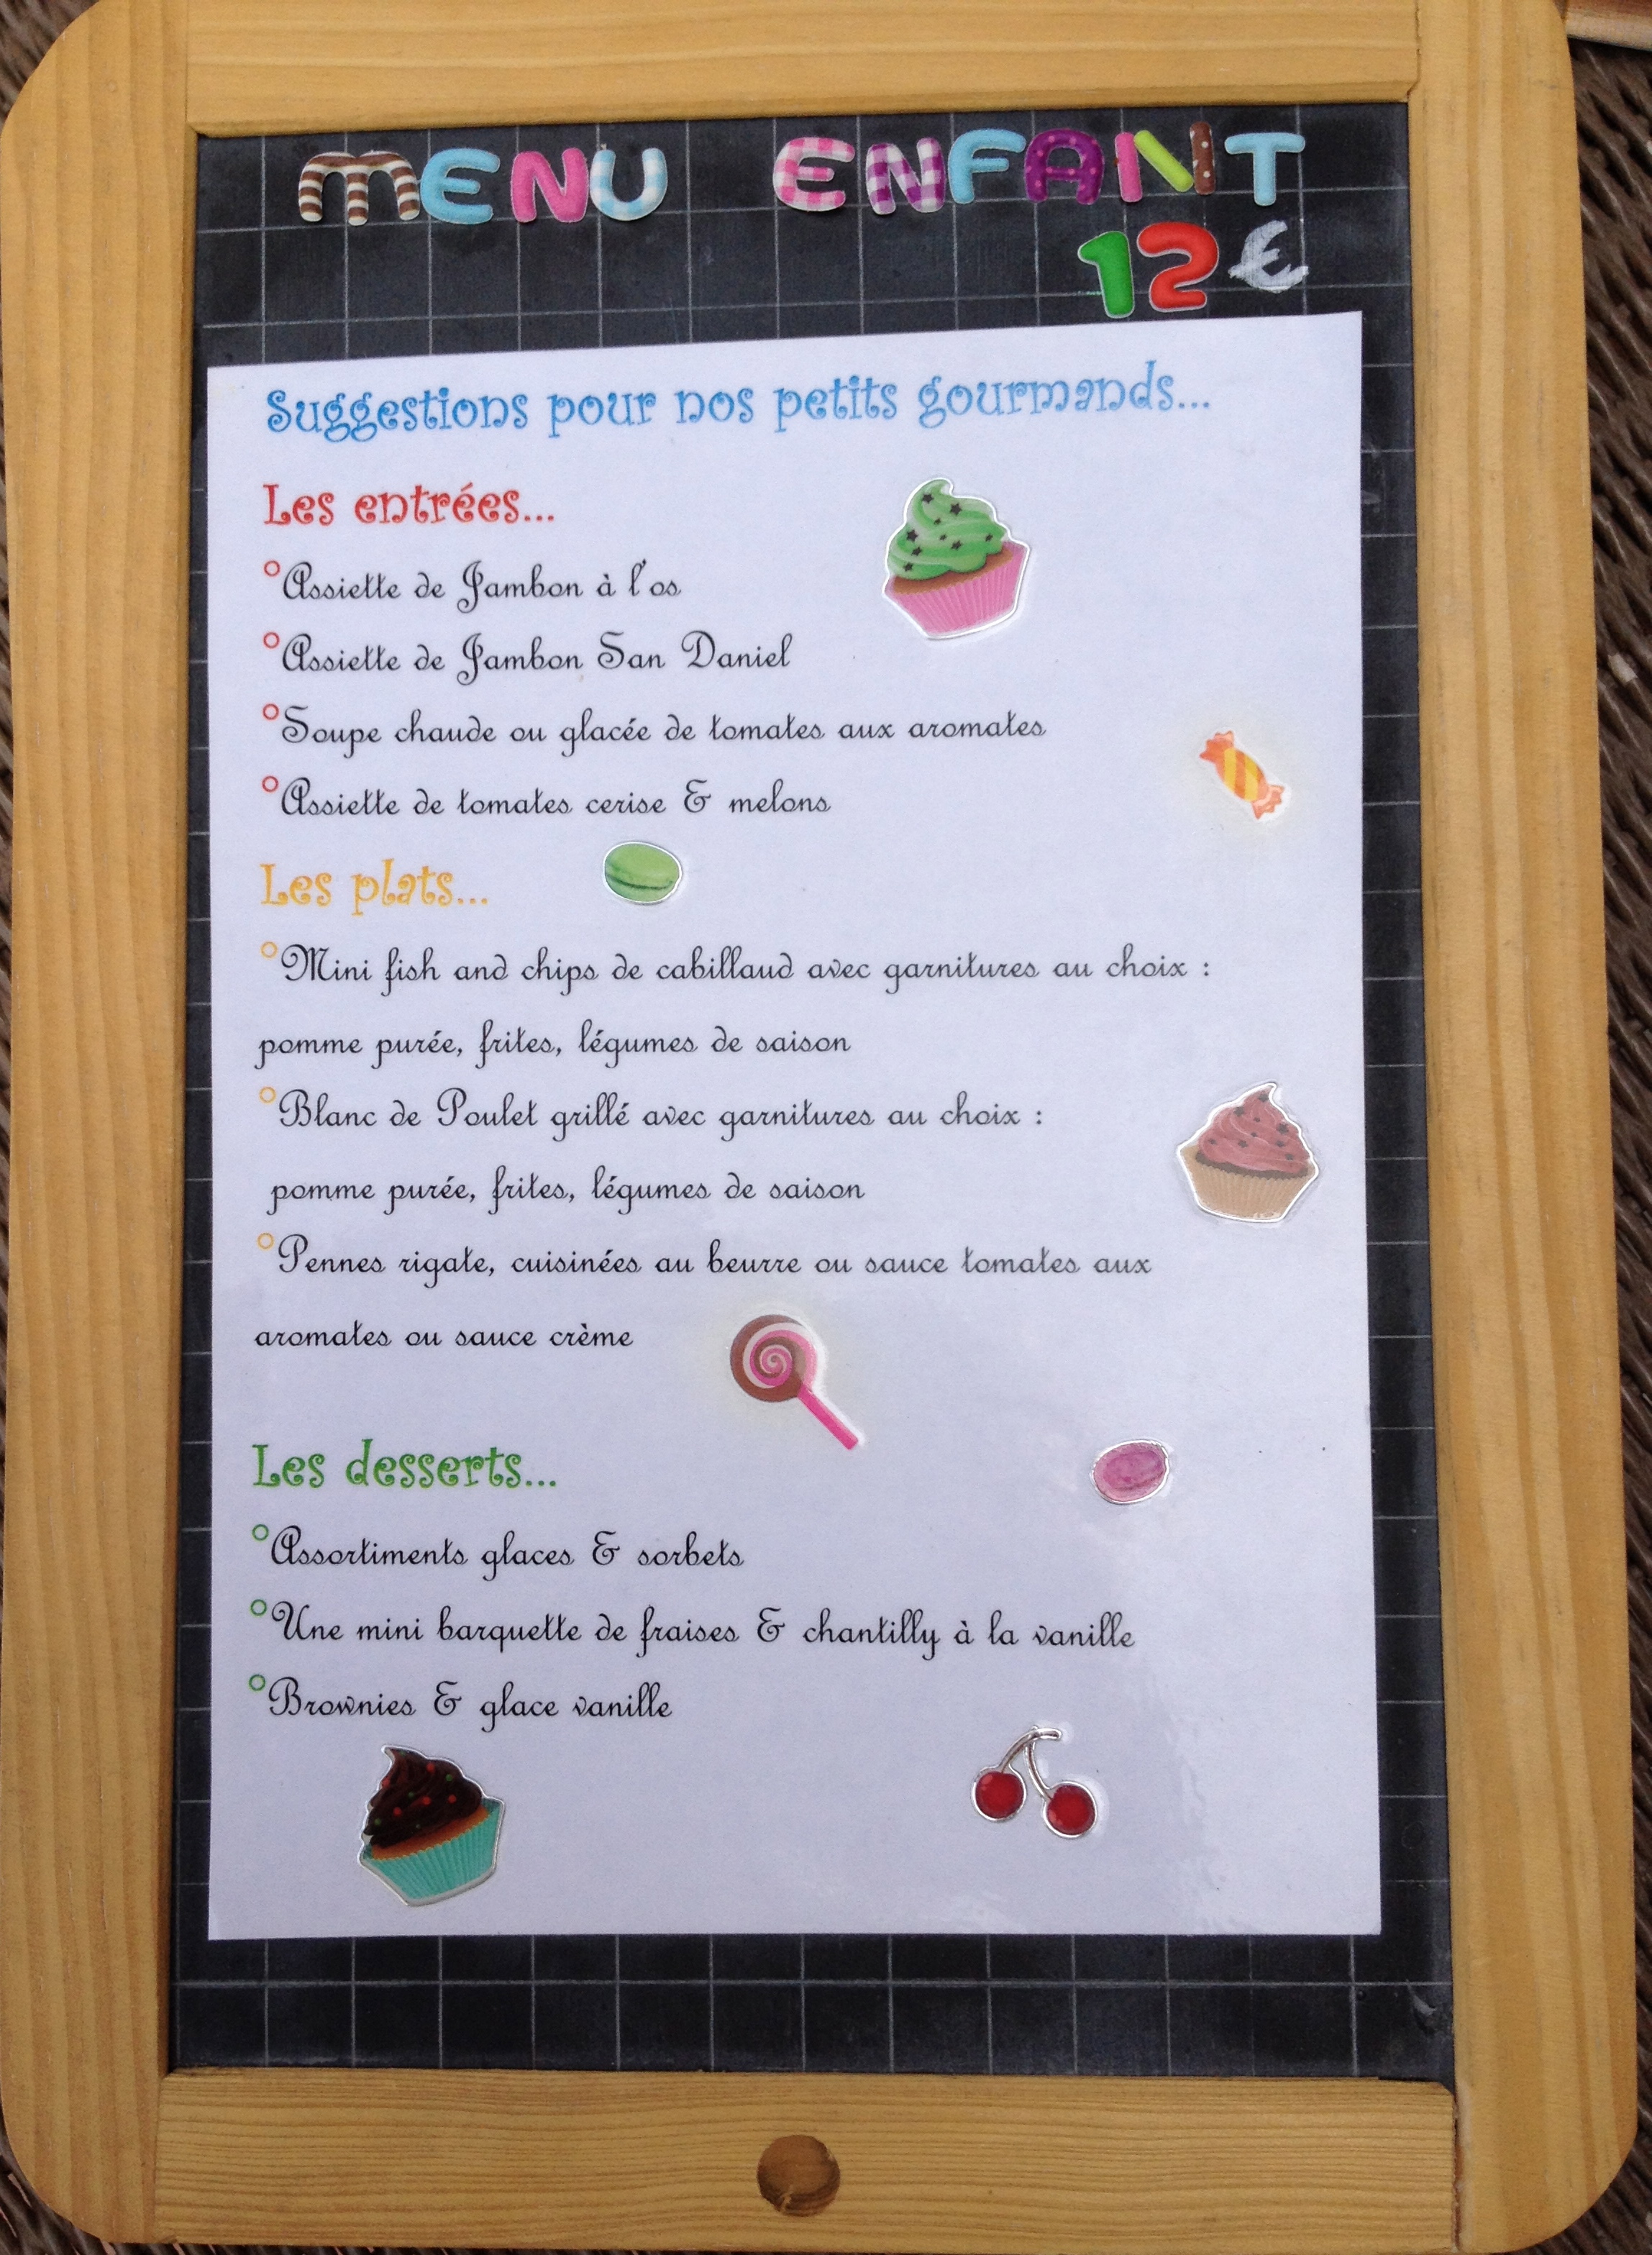 MENU ENFANT
12€
Suggestions pour nos petits gourmands...
Les entrées...
°Assiette de Jambon à l'os
°Assiette de Jambon San Daniel
°Soupe chaude ou glacée de tomates aux aromates
°Assiette de tomates cerise & melons
Les plats...
°Mini fish and chips de cabillaud avec garnitures au choix :
pomme purée, frites, légumes de saison
°Blanc de Poulet grillé avec garnitures au choix :
pomme purée, frites, légumes de saison
°Pennes rigate, cuisinées au beurre ou sauce tomates aux
aromates ou sauce crème
Les desserts...
°Assortiments glaces & sorbets
°Une mini barquette de fraises & chantilly à la vanille
°Brownies & glace vanille